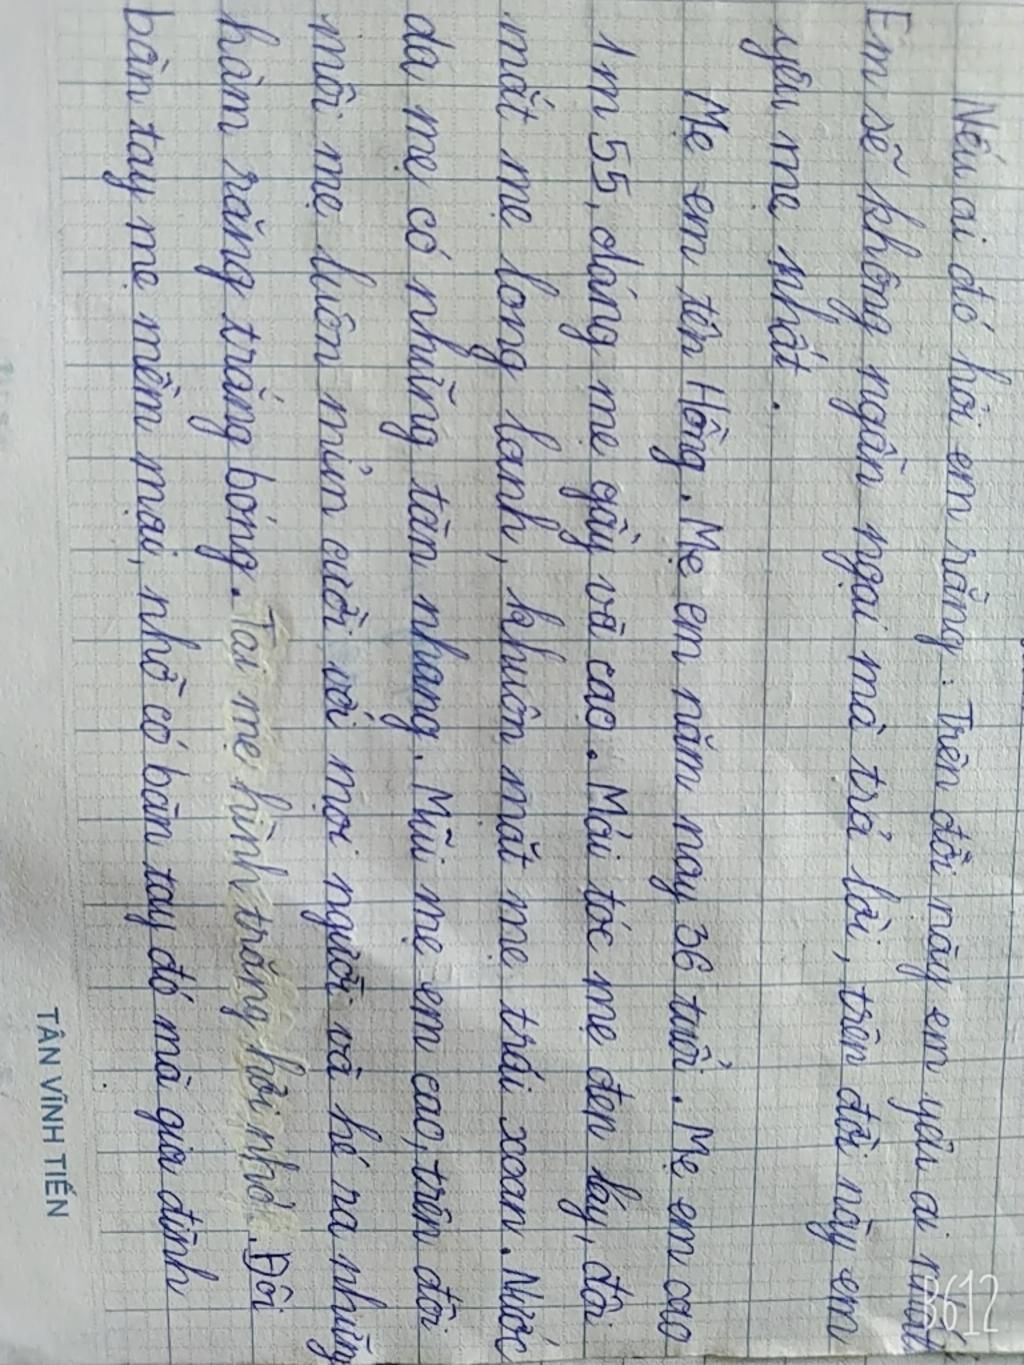 Nếu ai đó hỏi em rằng: Trên đời này em yêu ai nhất
Em sẽ không ngần ngại mà trả lời, trên đời này em
yêu mẹ nhất.
Mẹ em tên Hồng. Mẹ em năm nay 36 tuổi. Mẹ em cao
1m 55, dáng mẹ gầy và cao. Mái tóc mẹ đen láy, đôi
mắt mẹ long lanh, khuôn mặt mẹ trái xoan. Nước
da mẹ có những tàn nhang. Mũi mẹ em cao, trên đôi
môi mẹ luôn mỉm cười với mọi người và hé ra những
hàm răng trắng bóng. Tai mẹ hình trăng hơi nhỏ. Đôi
bàn tay mẹ mềm mại, nhờ có bàn tay đó mà gia đình
TÂN VĨNH TIẾN
B612